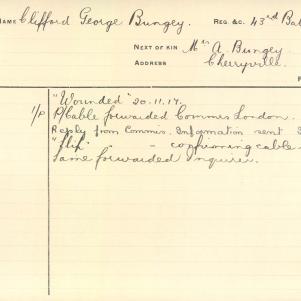 NAME Clifford George Bungey. REG. &C. 43rd Bat
NEXT OF KIN Mrs A. Bungey
ADDRESS Cherryville.
"Wounded" 20.11.17.
1/P P/Cable forwarded Commis London.
Reply from Commis. Information sent
"slip" - copfirming cable
Same forwarded Inquirer.